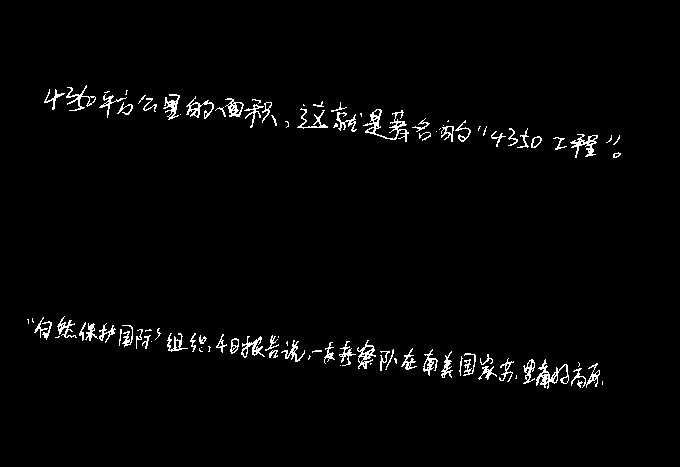 4350平方公里的面积，这就是著名的“4350工程”。
“自然保护国际”组织4日报告说，一支考察队在南美国家苏里南的高原